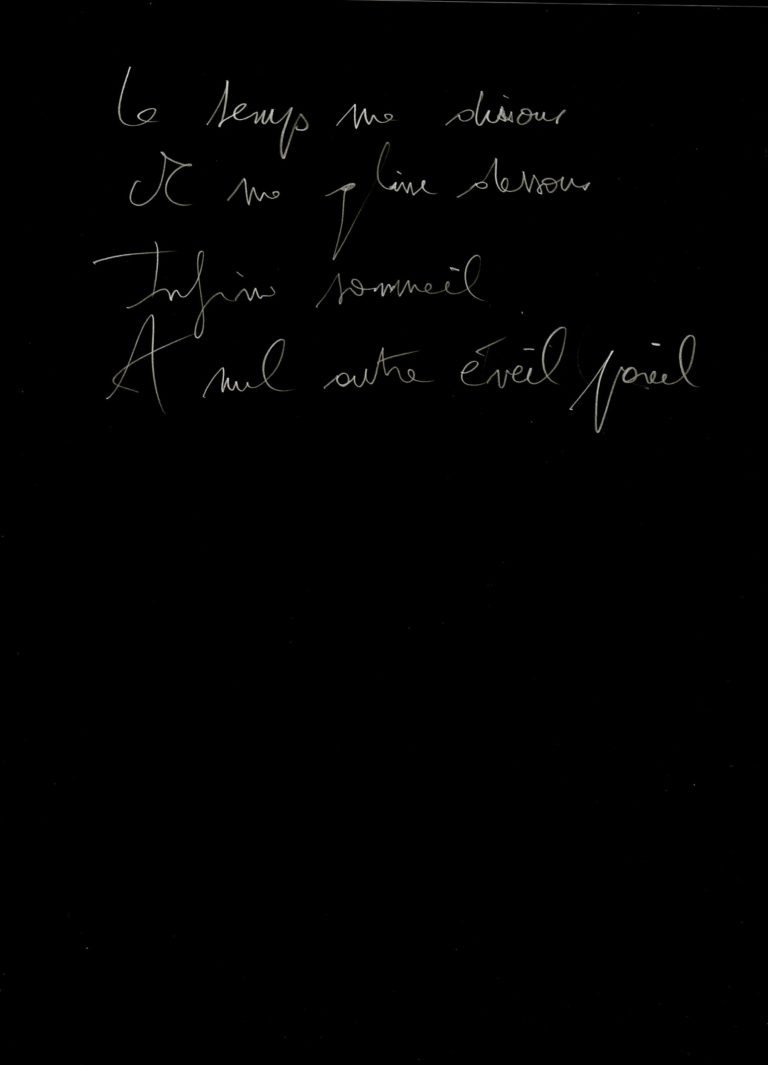 Le temps me dissous
Et me glisse dessous
Infini sommeil
A nul autre éveil pareil